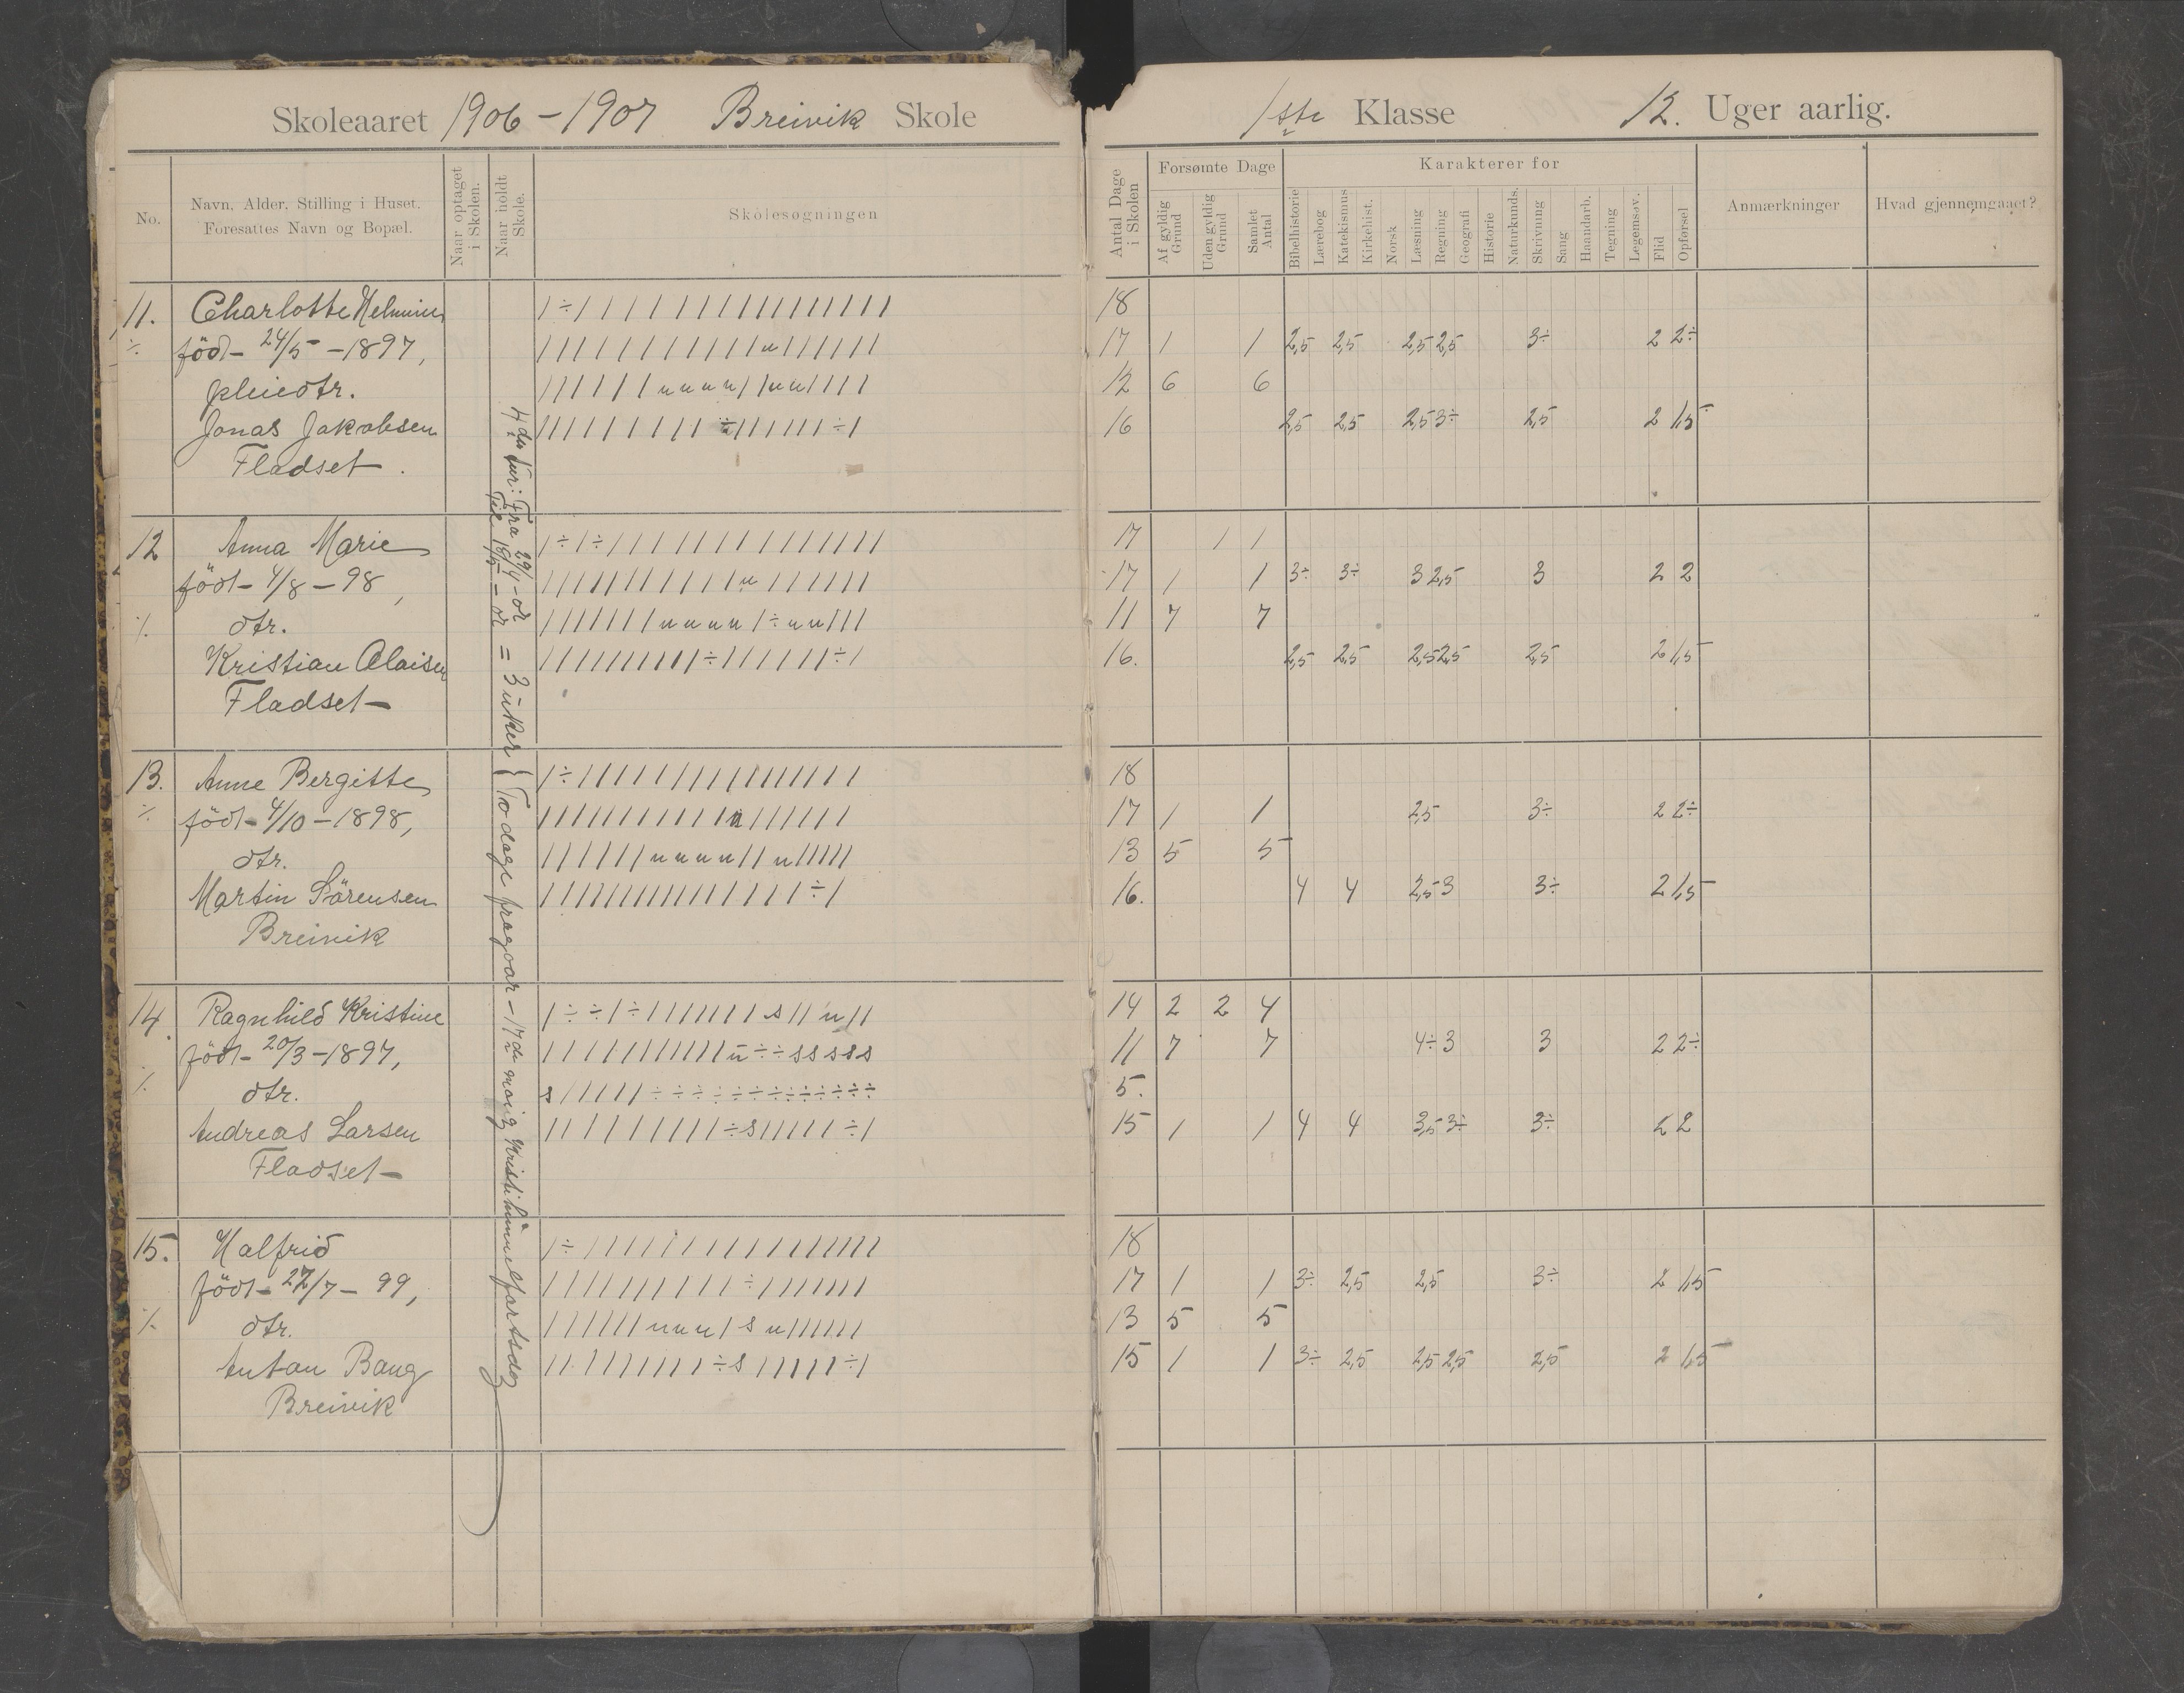 Skoleaaret 1906-1907 Breivik Skole
No.
Navn, Alder, Stilling i Huset.
Foresattes Navn og Bopæl.
Naar optaget
i Skolen.
Naar holdt
Skole.
Skolesøgningen
11. Charlotte
född 24/5 - 1897,
pleiedtr.
Jonas Jakobsen
Fladset
12 Anna Marie
född 4/8 - 98,
dtr.
Kristian
Fladset
13. Anne Bergitte
född 4/10 - 1898,
dtr.
Martin Sörensen
Breivik
14. Ragnhild Kristine
född 20/3 - 1897,
dtr.
Andreas Larsen
Fladset
15. Halfrid
född 27/7 - 99,
dtr.
Anton Bang
Breivik
4de tur: Fra 29/4 - 07
Til 18/5 - 07 = 3 uker { To dage fragaar - 17de mai og Kristihimmelfartsdag
1ste Klasse 12. Uger aarlig.
Antal Dage
i Skolen
Forsømte Dage
Af gyldig
Grund
Uden gyldig
Grund
Samlet
Antal
Karakterer for
Bibelhistorie
Lærebog
Katekismus
Kirkehist.
Norsk
Læsning
Regning
Geografi
Historie
Naturkunds.
Skrivning
Sang
Haandarb.
Tegning
Legemsøv.
Flid
Opførsel
Anmærkninger
Hvad gjennemgaaet?
18
17 1 1 2,5 2,5 2,5 2,5 3÷ 2 2÷
12 6 6
16 2,5 2,5 2,5 3÷ 2,5 2 1,5
17 1 1
17 1 1 3÷ 3÷ 3 2,5 3 2 2
11 7 7
16. 2,5 2,5 2,5 2,5 2,5 2 1,5
18
17 1 1 2,5 3÷ 2 2÷
13 5 5
16. 4 4 2,5 3 3÷ 2 1,5
14 2 2 4
11 7 7 4÷ 3 3 2 2÷
5.
15 1 1 4 4 3,5 3÷ 3÷ 2 2
18
17 1 1 3÷ 2,5 2,5 3÷ 2 1,5
13 5 5
15 1 1 3÷ 2,5 2,5 2,5 2,5 2 1,5